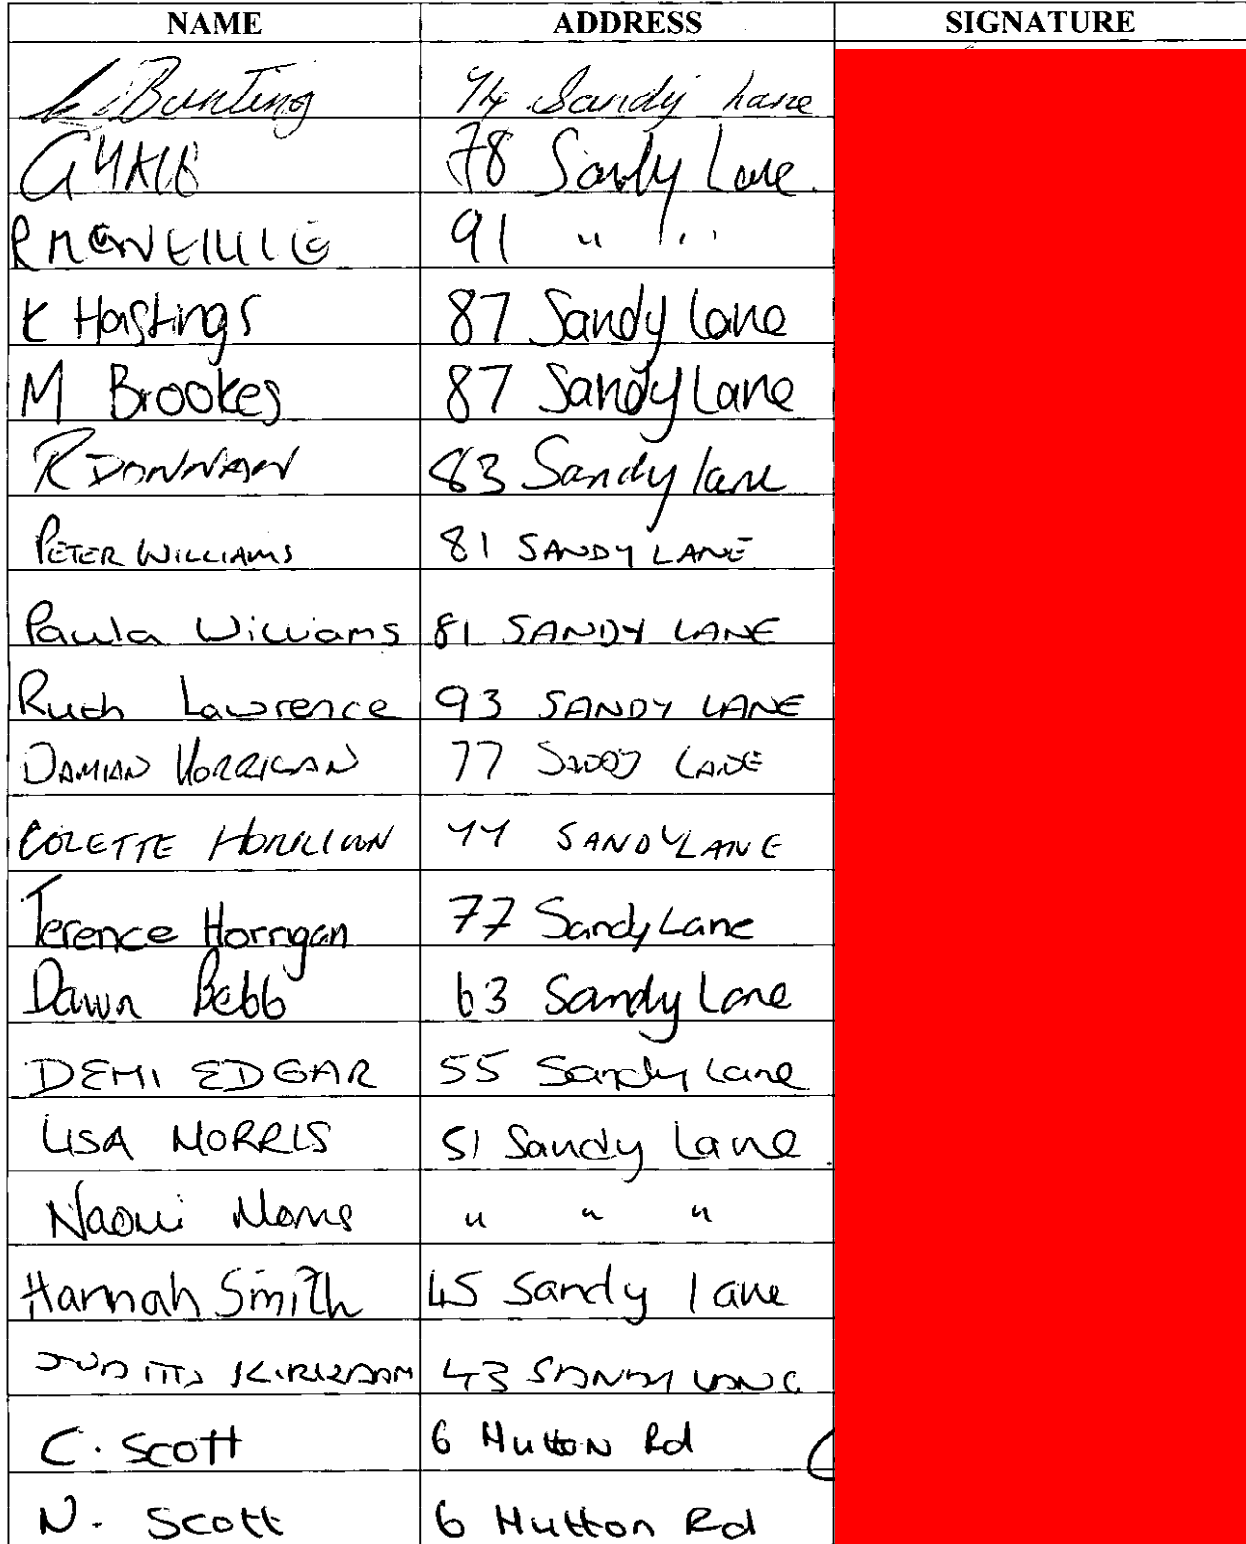 NAME ADDRESS SIGNATURE
Bunting 74 Sandy Lane
78 Sandy Lane.
R 91 " "
K Hastings 87 Sandy Lane
M Brookes 87 Sandy Lane
R DONNAN 83 Sandy lane
PETER WILLIAMS 81 SANDY LANE
Paula Williams 81 SANDY LANE
Ruth Lawrence 93 SANDY LANE
DAMIAN HORRIGAN 77 SANDY LANE
COLETTE HORRIGAN 77 SANDY LANE
Terence Horrigan 77 Sandy Lane
Dawn Bebb 63 Sandy Lane
DEMI EDGAR 55 Sandy Lane
LISA MORRIS 51 Sandy Lane
Naomi Morris " " "
Hannah Smith 45 Sandy lane
JUDITH KIRKHAM 43 SANDY LANE
C. Scott 6 Hutton Rd
N. Scott 6 Hutton Rd